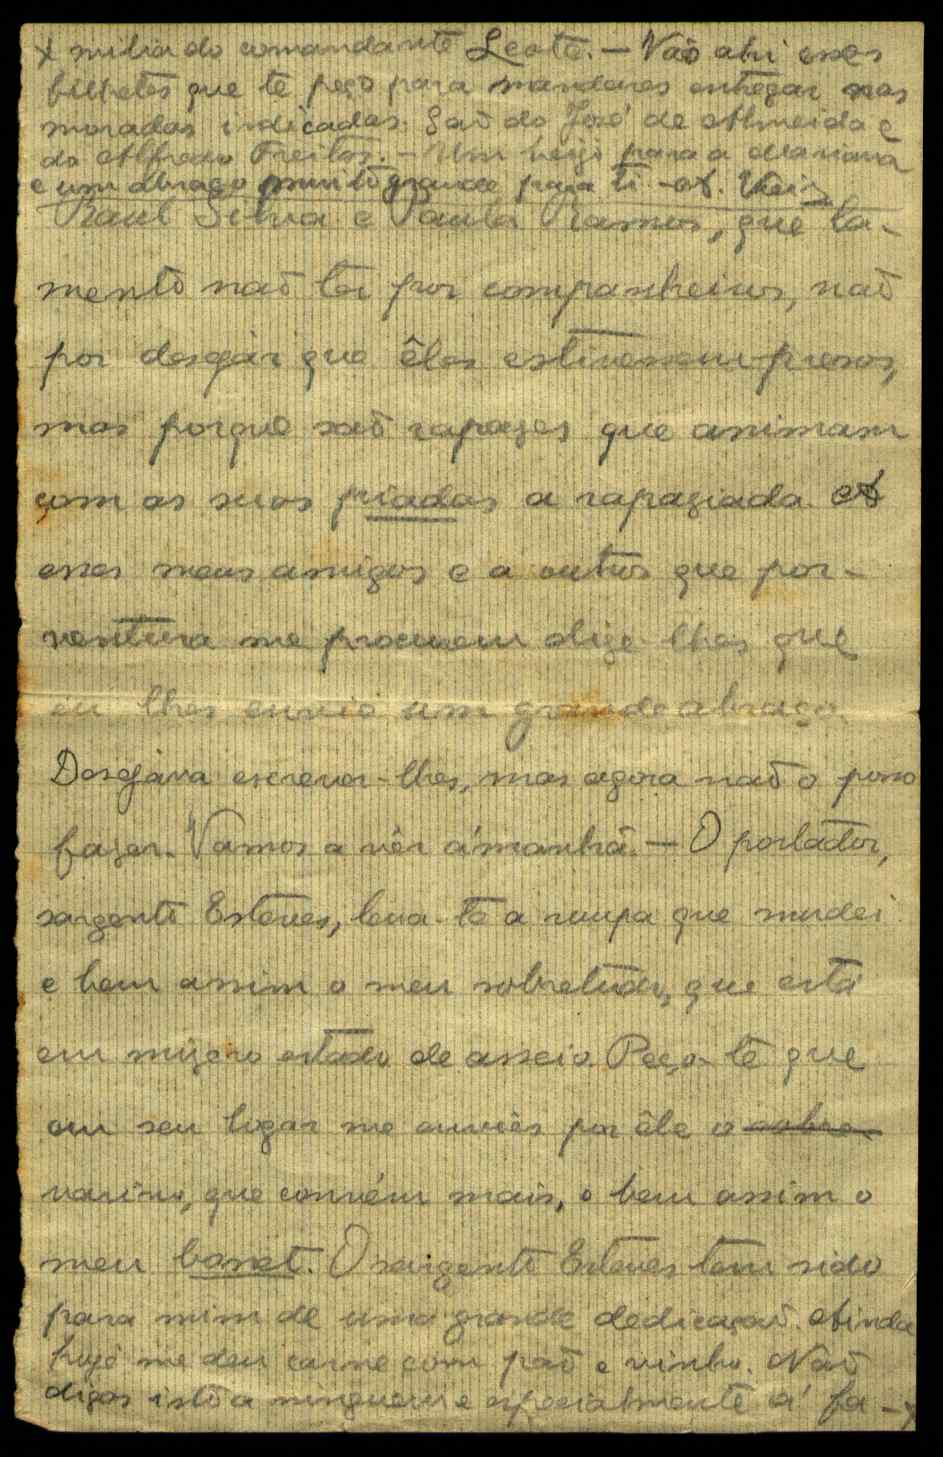 x milia do comandante Leote. — Vão ahi esses
bilhetes que te peço para mandares entregar nas
moradas indicadas. São do José de Almeida e
do Alfredo Freitas. — Um beijo para a Mariana
e um abraço muito grande para ti. - A.
Raul Silva e Paula Ramos, que la-
mento não ter por companheiros, não
por desejár que êles estivessem presos,
mas porque são rapazes que animam
com as suas piadas a rapaziada. A
esses meus amigos e a outros que por-
ventura me procurem dize-lhes que
eu lhes envio um grande abraço.
Desejava escrever-lhes, mas agora não o posso
fazer. Vamos a vêr ámanhã. — O portador,
sargento Esteves, leva-te a roupa que mudei
e bem assim o meu sobretudo, que está
em mizero estado de asseio. Peço-te que
em seu logar me envies por êle o
varino, que convém mais, e bem assim o
meu bonet. O sargento Esteves tem sido
para mim de uma grande dedicação. Ainda
hoje me deu carne com pão e vinho. Não
digas isto a ninguem e especialmente á fa- x